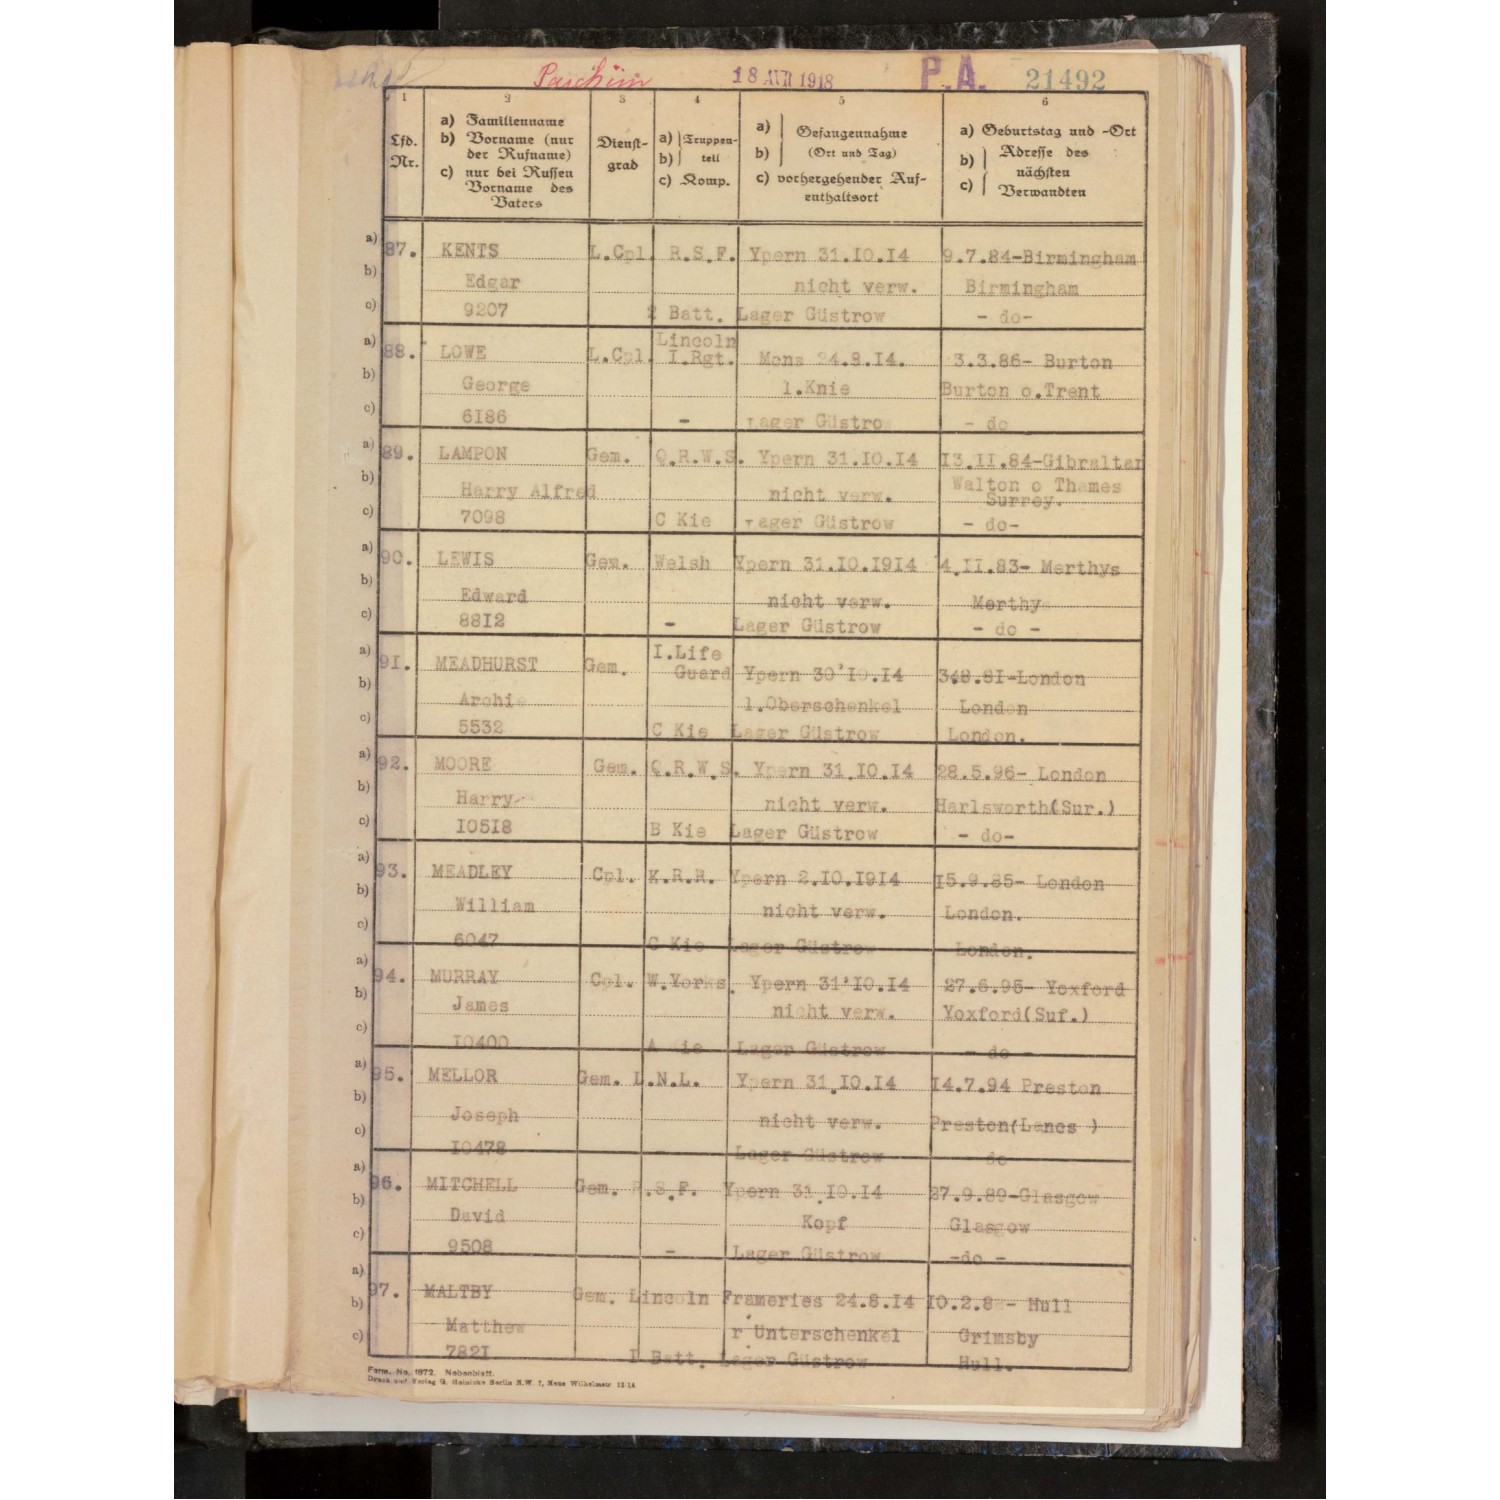 Parchim 18 AVR 1918 P.A. 21492
1 2 3 4 5 6
Lfd. Nr.
a) Familienname
b) Vorname (nur der Rufname)
c) nur bei Russen Vorname des Vaters
Dienstgrad
a) b) Truppenteil
c) Komp.
a) b) Gefangennahme (Ort und Tag)
c) vorhergehender Aufenthaltsort
a) Geburtstag und -Ort
b) c) Adresse des nächsten Verwandten
a) 87. KENTS L.Cpl. R.S.F. Ypern 31.IO.I4 9.7.84-Birmingham
b) Edgar nicht verw. Birmingham
c) 9207 2 Batt. Lager Güstrow - do-
a) 88. LOWE L.Cpl. Lincoln I.Rgt. Mons 24.8.I4. 3.3.86- Burton
b) George l.Knie Burton o.Trent
c) 6I86 - Lager Güstro - do
a) 89. LAMPON Gem. Q.R.W.S. Ypern 31.IO.I4 I3.II.84-Gibraltar
b) Harry Alfred nicht verw. Walton o Thames Surrey.
c) 7098 C Kie Lager Güstrow - do-
a) 90. LEWIS Gem. Welsh Ypern 31.IO.I9I4 4.II.83- Merthys
b) Edward nicht verw. Merthy
c) 88I2 - Lager Güstrow - do -
a) 9I. MEADHURST Gem. I.Life Guard Ypern 30'IO.I4 3.8.8I-London
b) Archie l.Oberschenkel London
c) 5532 C Kie Lager Güstrow London.
a) 92. MOORE Gem. Q.R.W.S. Ypern 31.IO.I4 28.5.96- London
b) Harry nicht verw. Harlsworth(Sur.)
c) I05I8 B Kie Lager Güstrow - do-
a) 93. MEADLEY Cpl. K.R.R. Ypern 2.IO.I9I4 I5.9.85- London
b) William nicht verw. London.
c) 6047 C Kie Lager Güstrow London.
a) 94. MURRAY Cpl. W.Yorks. Ypern 31'IO.I4 27.6.95- Yoxford
b) James nicht verw. Yoxford(Suf.)
c) I0400 A Kie Lager Güstrow - do -
a) 95. MELLOR Gem. L.N.L. Ypern 31.IO.I4 I4.7.94 Preston
b) Joseph nicht verw. Preston(Lancs )
c) I0478 - Lager Güstrow do
a) 96. MITCHELL Gem. R.S.F. Ypern 31.IO.I4 27.9.89-Glasgow
b) David Kopf Glasgow
c) 9508 - Lager Güstrow -do -
a) 97. MALTBY Gem. Lincoln Frameries 24.8.I4 - Hull
b) Matthew r Unterschenkel Grimsby
c) 782I I Batt. Lager Güstrow Hull.
Form. No. 1872. Nebenblatt.
Druck und Verlag G. Heinicke Berlin N.W. 7, Neue Wilhelmstr